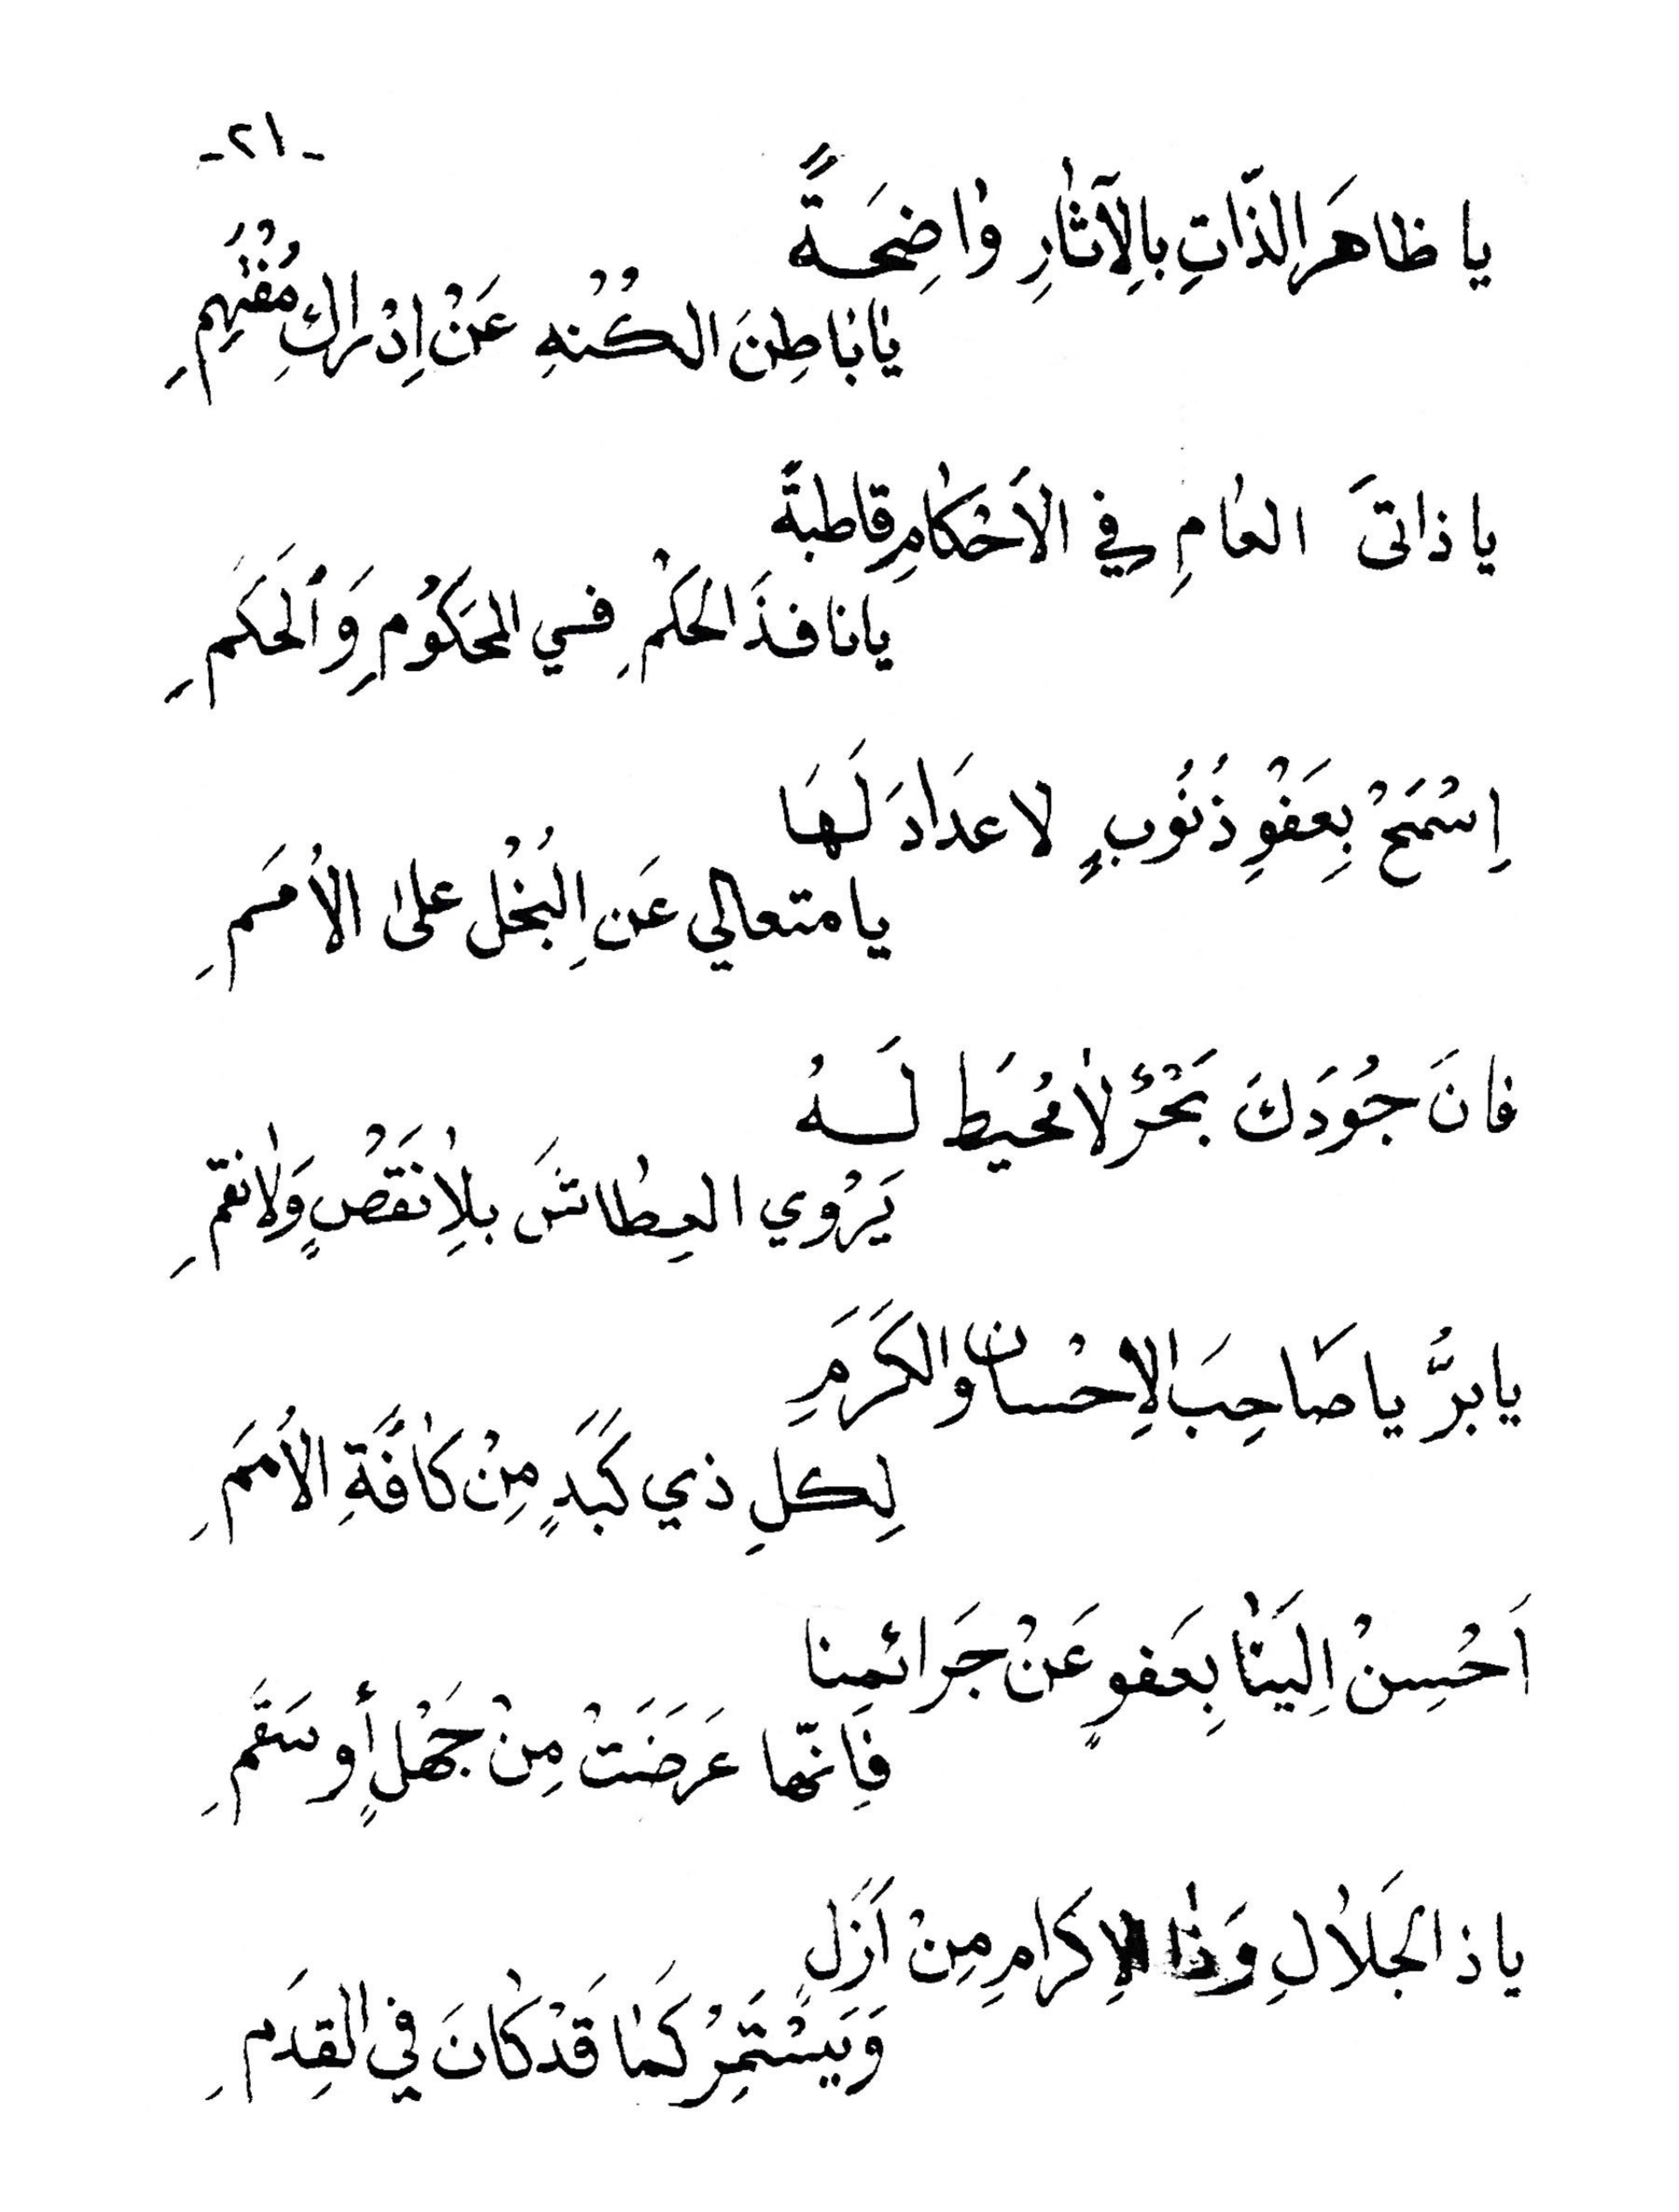 -٢١-
يا ظاهَرَ الِذّاتِ بالِآثارِ واضِحَةً
يابَاطِنَ الكُنْهِ عَنْ اِدْراكِ مُفْتَهِمِ
يا ذاتىَ العامِ في الأَحْكامِ قاطبةً
يانافذَ الحَكْمِ فسي المَحَكوُمِ وَأَلحَكَمِ
اِسْمَحْ بِعَفْوِ ذُنُوبٍ لا عدَادَ لَهَا
يا متعالي عَنِ البُخْل على الأُمَمِ
فانَ جُودَكَ بَحْرٌ لا مُحيَط لَهُ
يَرْوي العِطاشَ بلِا نَقَصْ وَلانقمِ
يا برُّ يا صَاحِبَ الاِحْسان والكَرَمِ
لِكلِ ذي كَبَدٍ مِنْ كافَّةِ الأُمَمِ
اَحْسِنْ اِلَينْا بِعَفوٍ عَنْ جَرائمنا
فَاِنّها عَرَضَتْ مِنْ جَهْلٍ أو سَقَمِ
يا ذ الجَلالِ وَذا الاِكرَامِ مِنْ اَزَلٍ
وَيَسْتَمِرُ كَما قَدْ كانَ في القِدَمِ